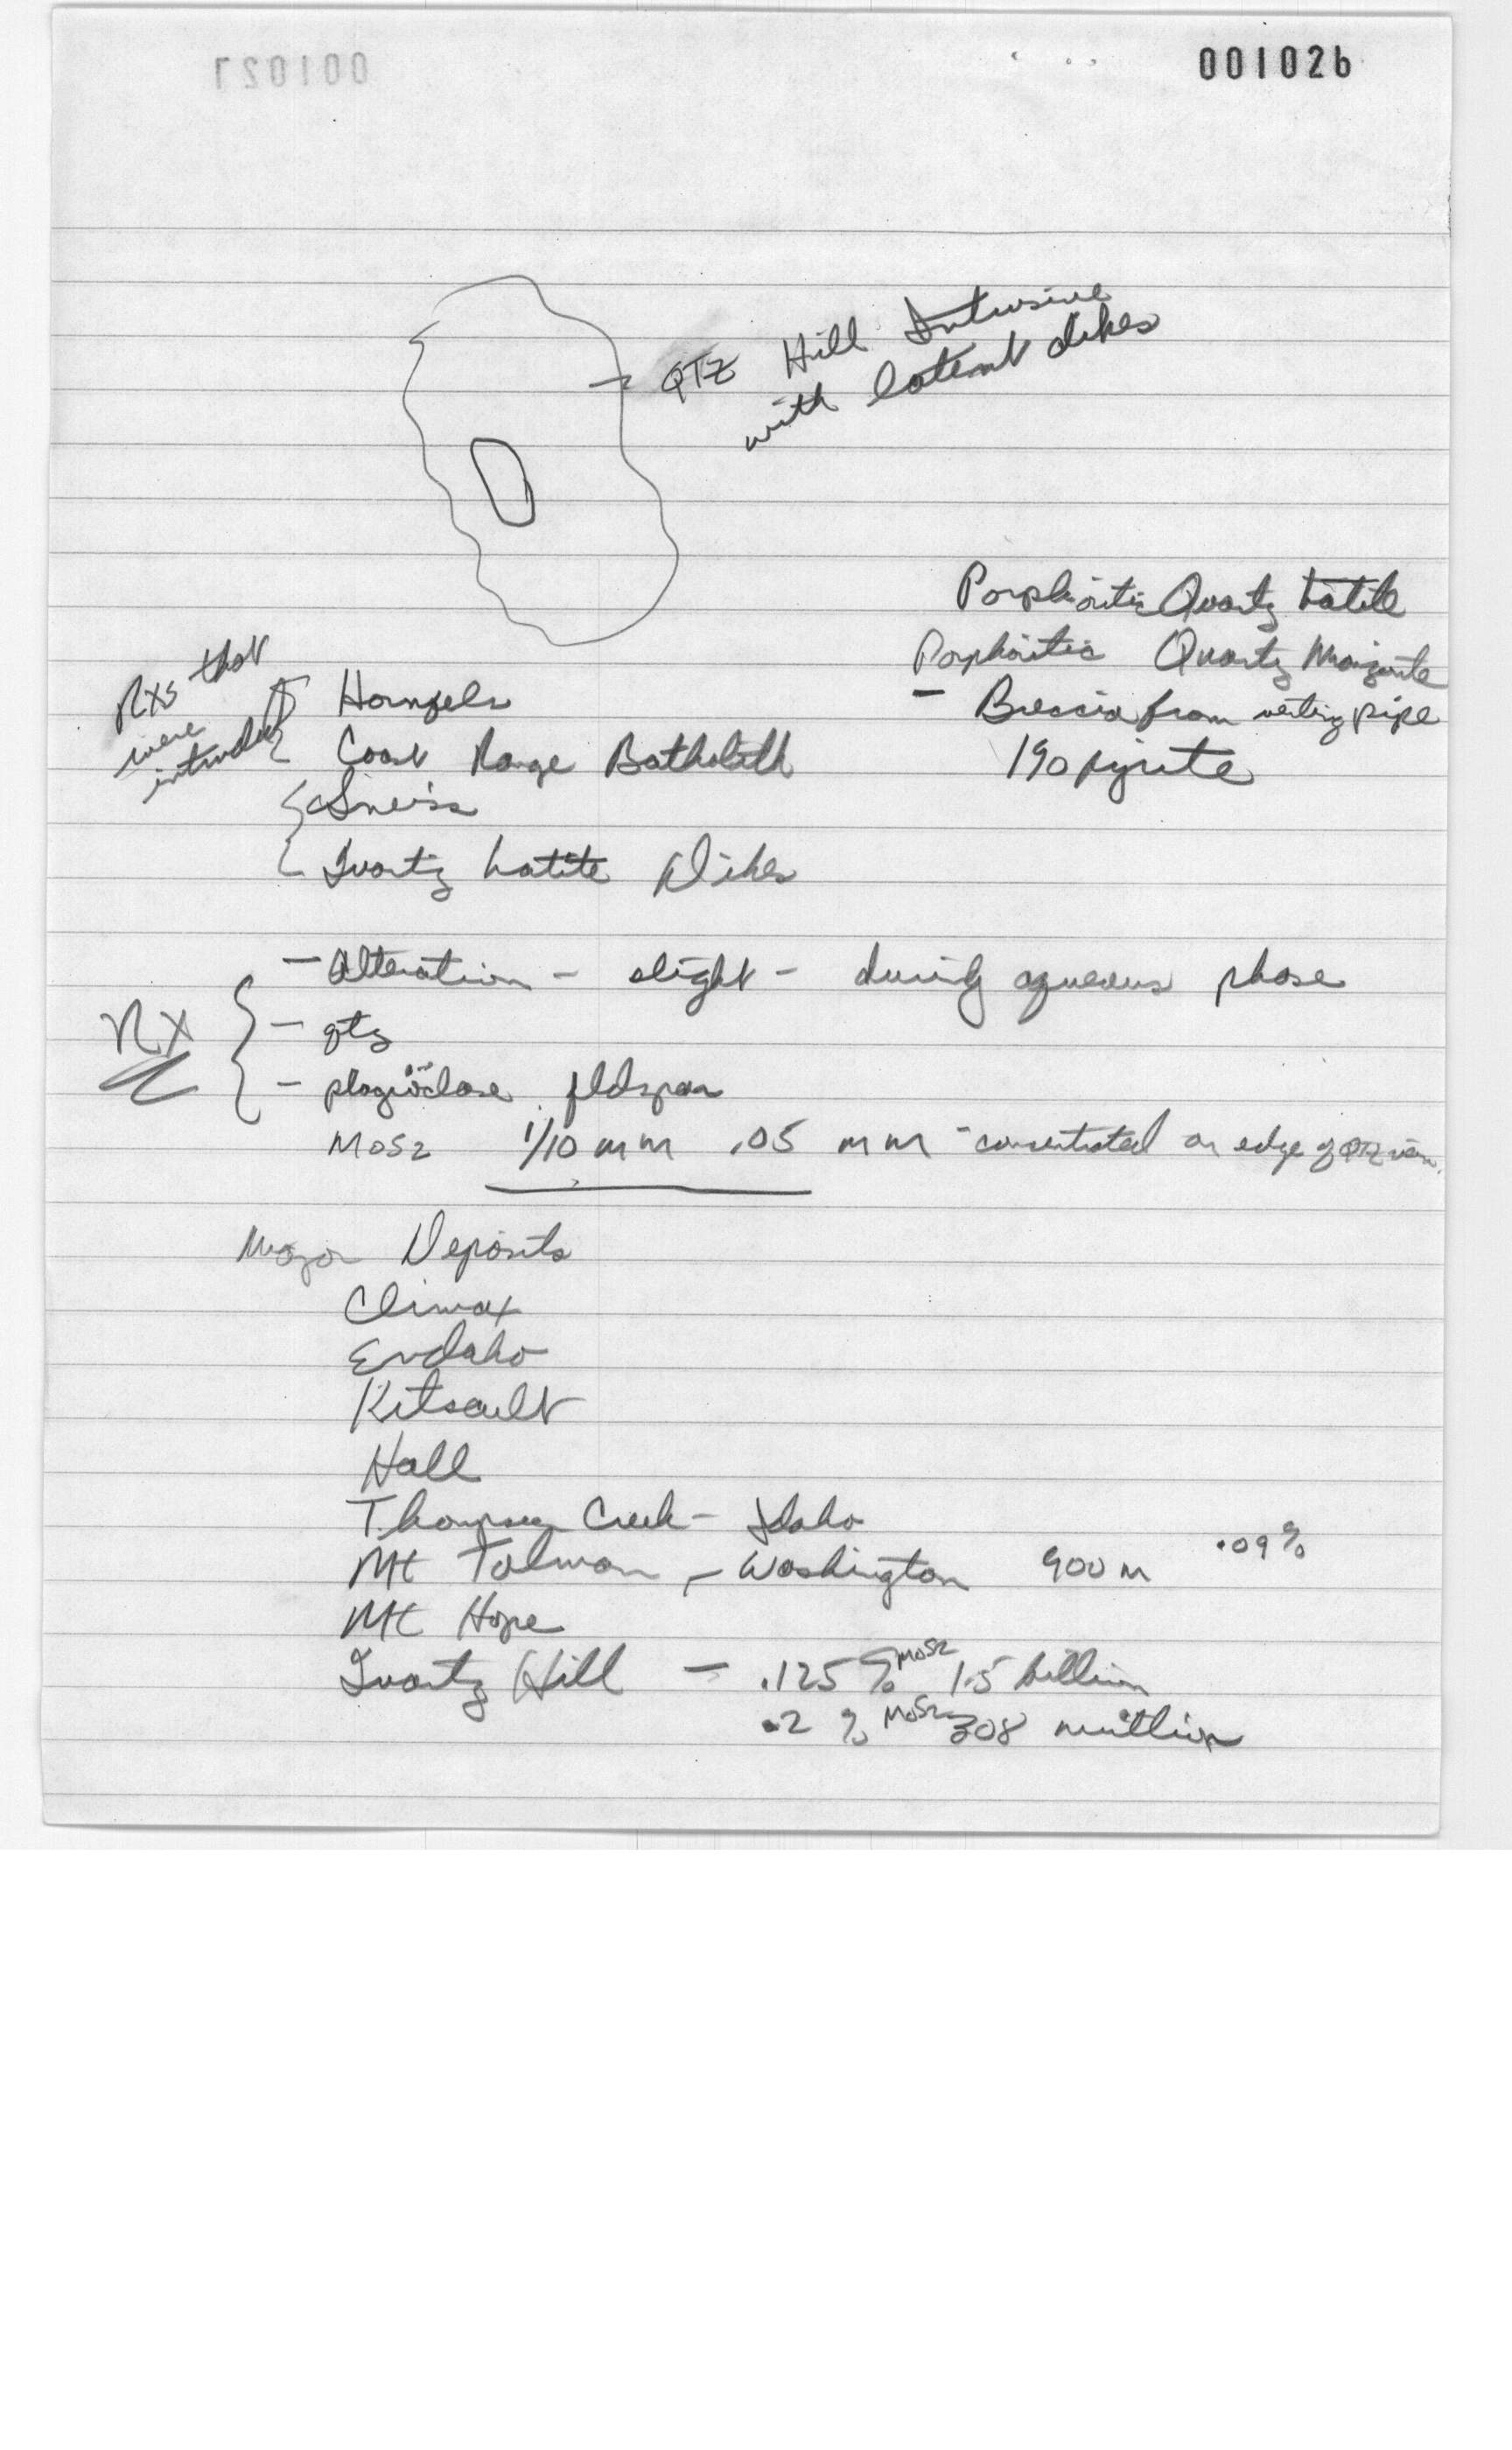 001026
QTZ Hill Intrusive
with latent dikes
Porphoritic Quartz Latite
Porphoritic Quartz Monzonite
- Breccia from venting pipe
1% pyrite
Rxs that
were
intruded
Hornfels
Coast Range Batholith
Gneiss
Quartz Latite Dikes
- Alteration - slight - during aqueous phase
RX
- qtz
- plagioclase fldspar
MoS2 1/10 mm .05 mm - concentrated on edge of QTZ vein.
Major Deposits
Climax
Endako
Kitsault
Hall
Thompson Creek - Idaho
Mt Tolman - Washington 900 m .09%
Mt Hope
Quartz Hill - .125 % MoS2 1.5 billion
.2 % MoS2 308 million